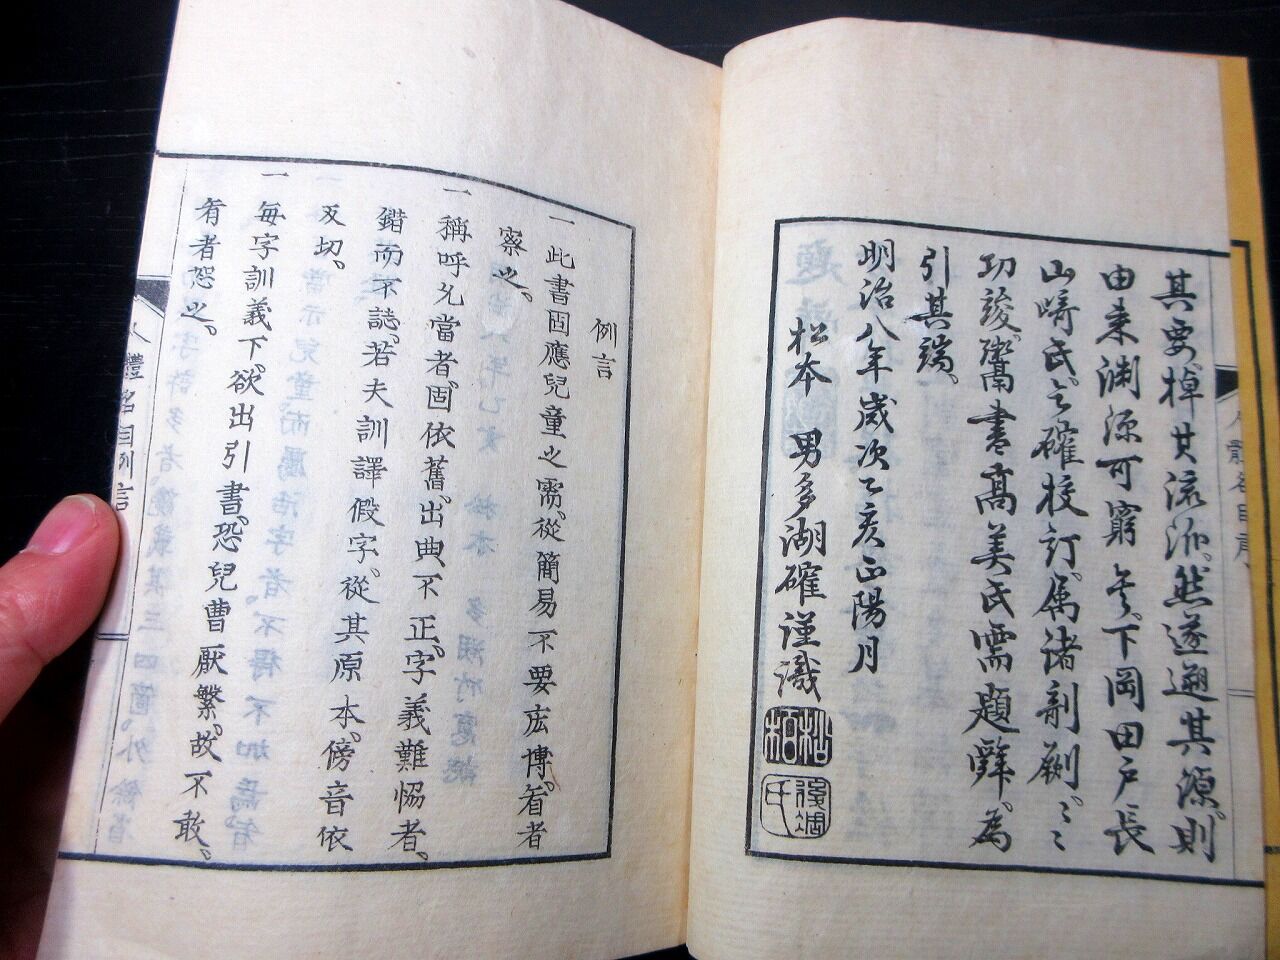 其要、棹其流派、然遂遡其源、則
由来渊源可窮矣、下岡田戸長
山﨑氏、乞確校訂、属諸剞劂、〻〻
功竣、鬻書高美氏需題辭、為
引其端、
明治八年歳次乙亥正陽月
松本 男多湖確謹識
人體名目
例言
一此書固應兒童之需、從簡易不要宏博、看者
察之、
一稱呼允當者、固依舊、出典不正、字義難恊者、
錯而不誌、若夫訓譯假字、從其原本、傍音依
反切、
一每字訓義下、欲出引書、恐兒曹厭繁、故不敢、
看者恕之、
人體名目例言